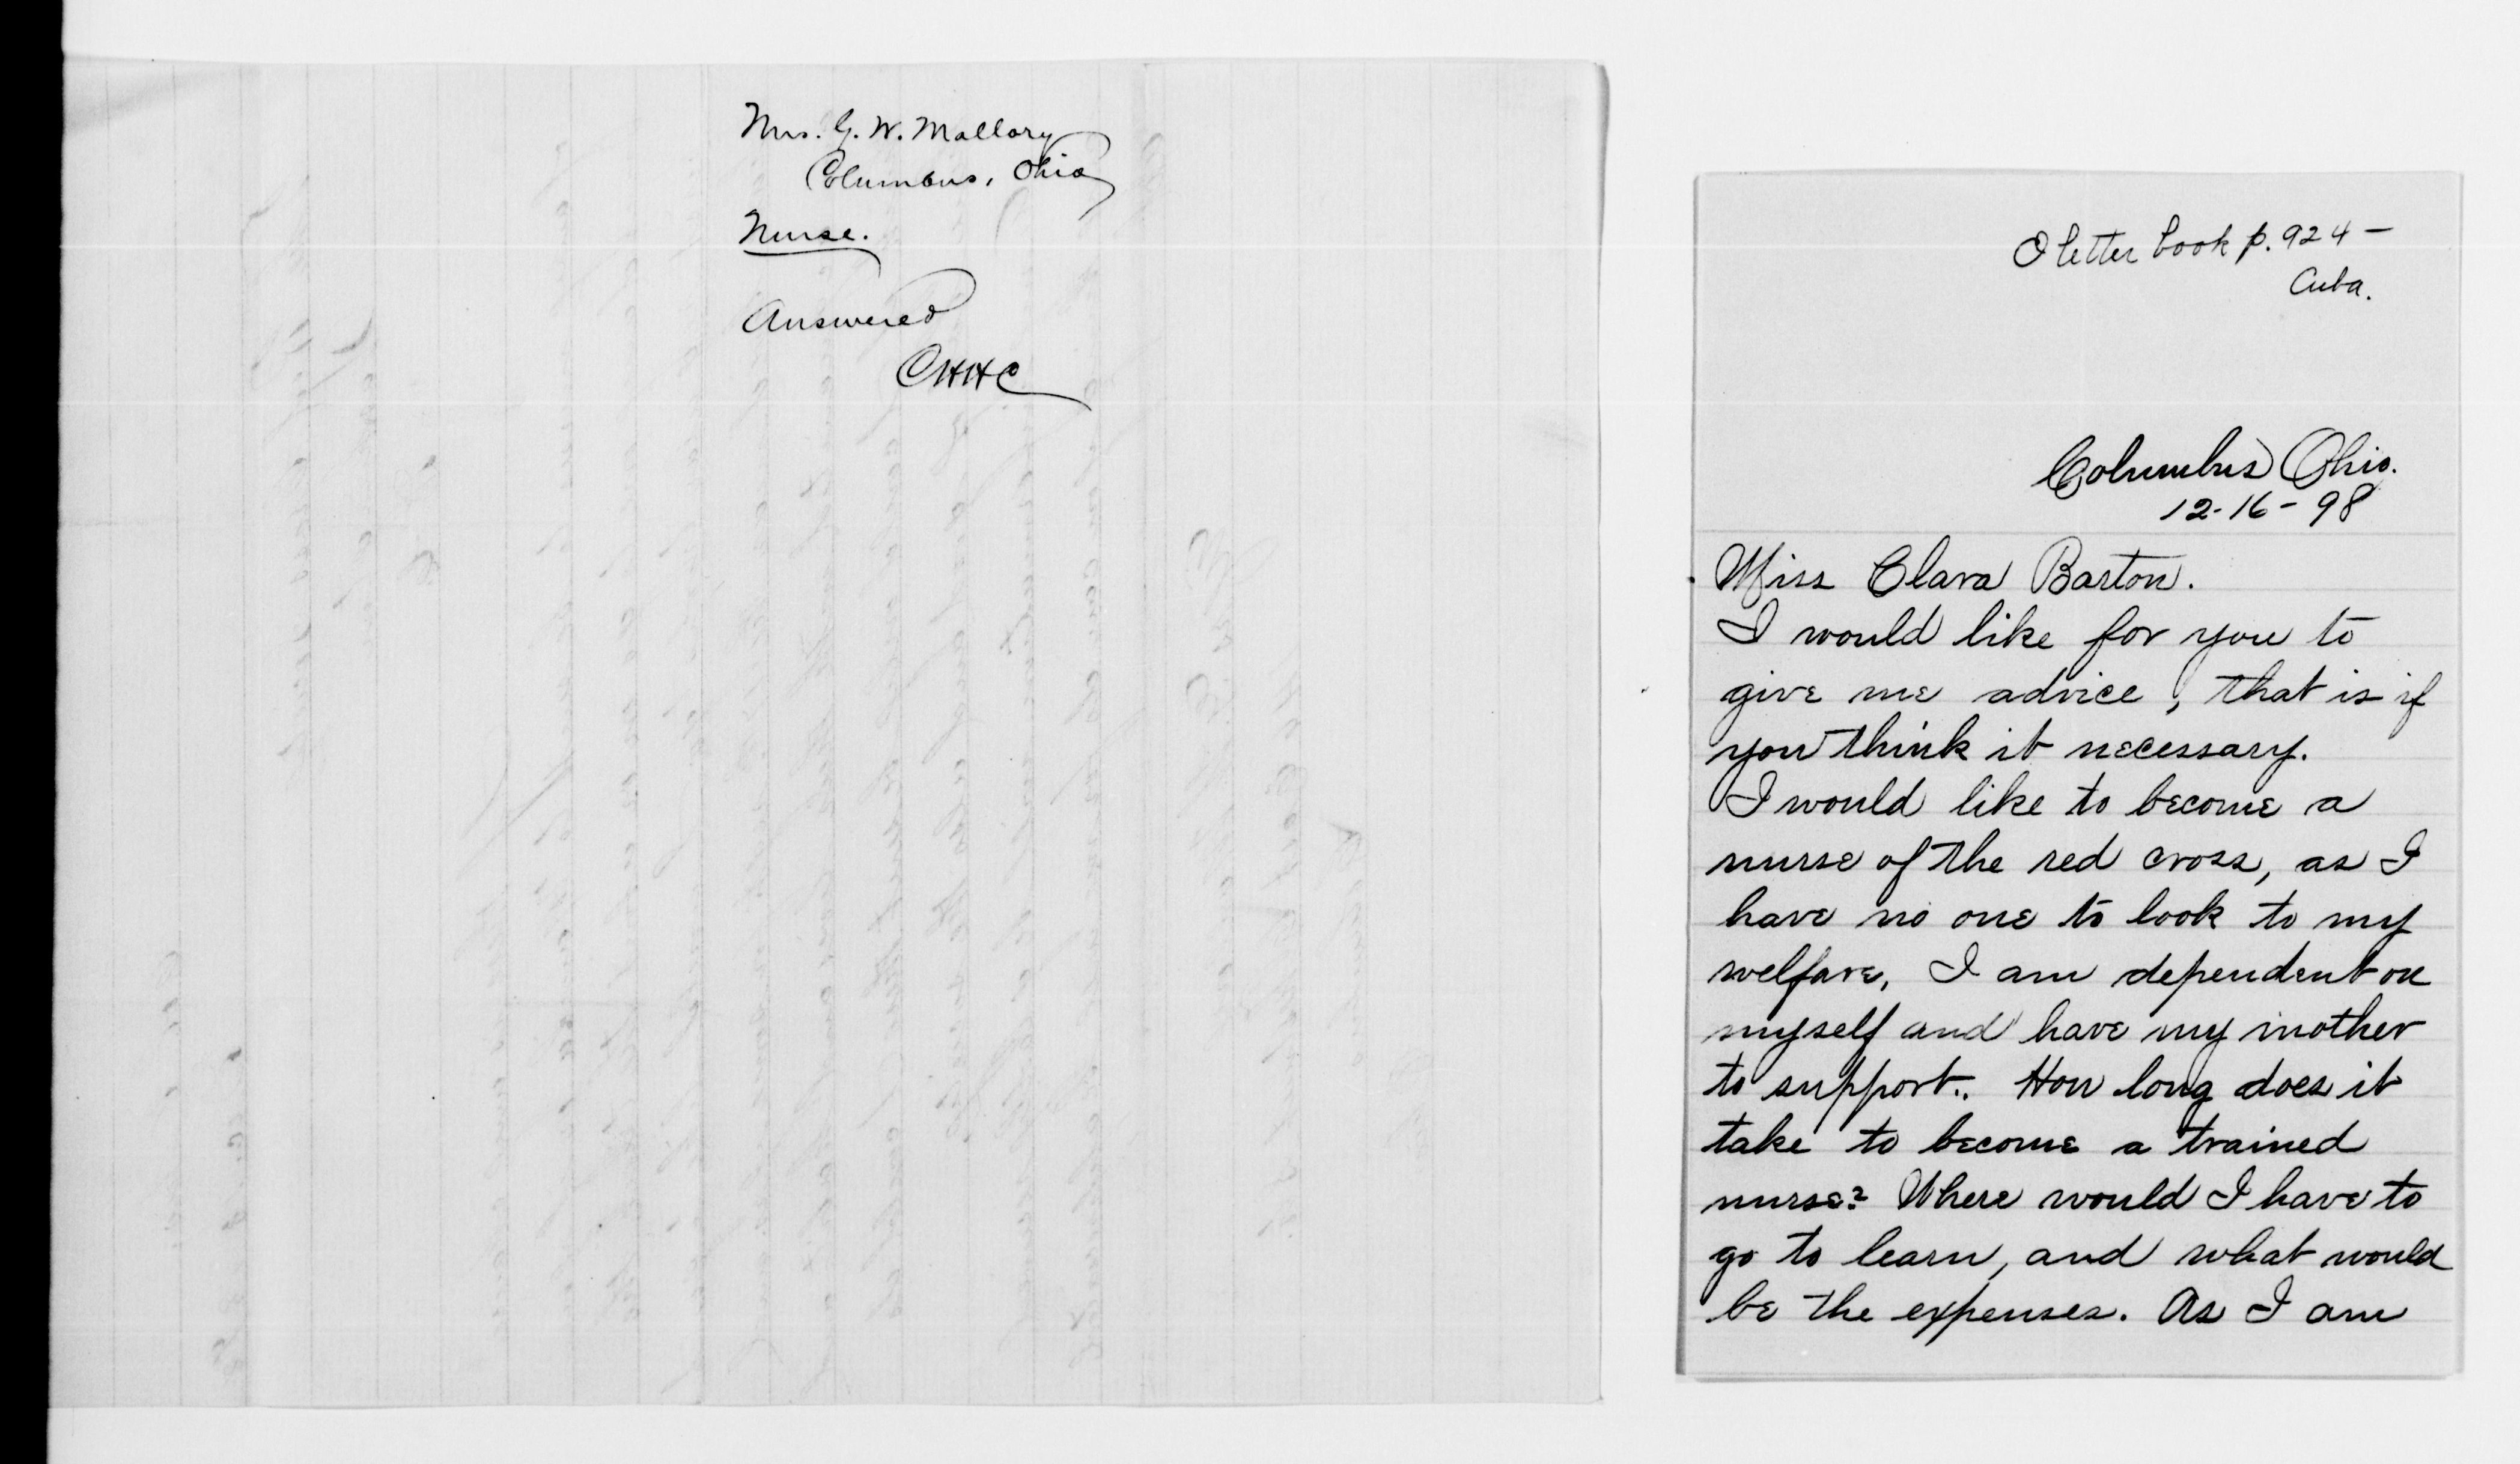 Mrs. G. W. Mallory
Columbus, Ohio
Nurse.
Answered
CHHC
letter book p. 924 -
Cuba.
Columbus Ohio.
12-16-98
Miss Clara Barton.
I would like for you to
give me advice, that is if
you think it necessary.
I would like to become a
nurse of the red cross, as I
have no one to look to my
welfare, I am dependent on
myself and have my mother
to support.. How long does it
take to become a trained
nurse? Where would I have to
go to learn, and what would
be the expenses. As I am